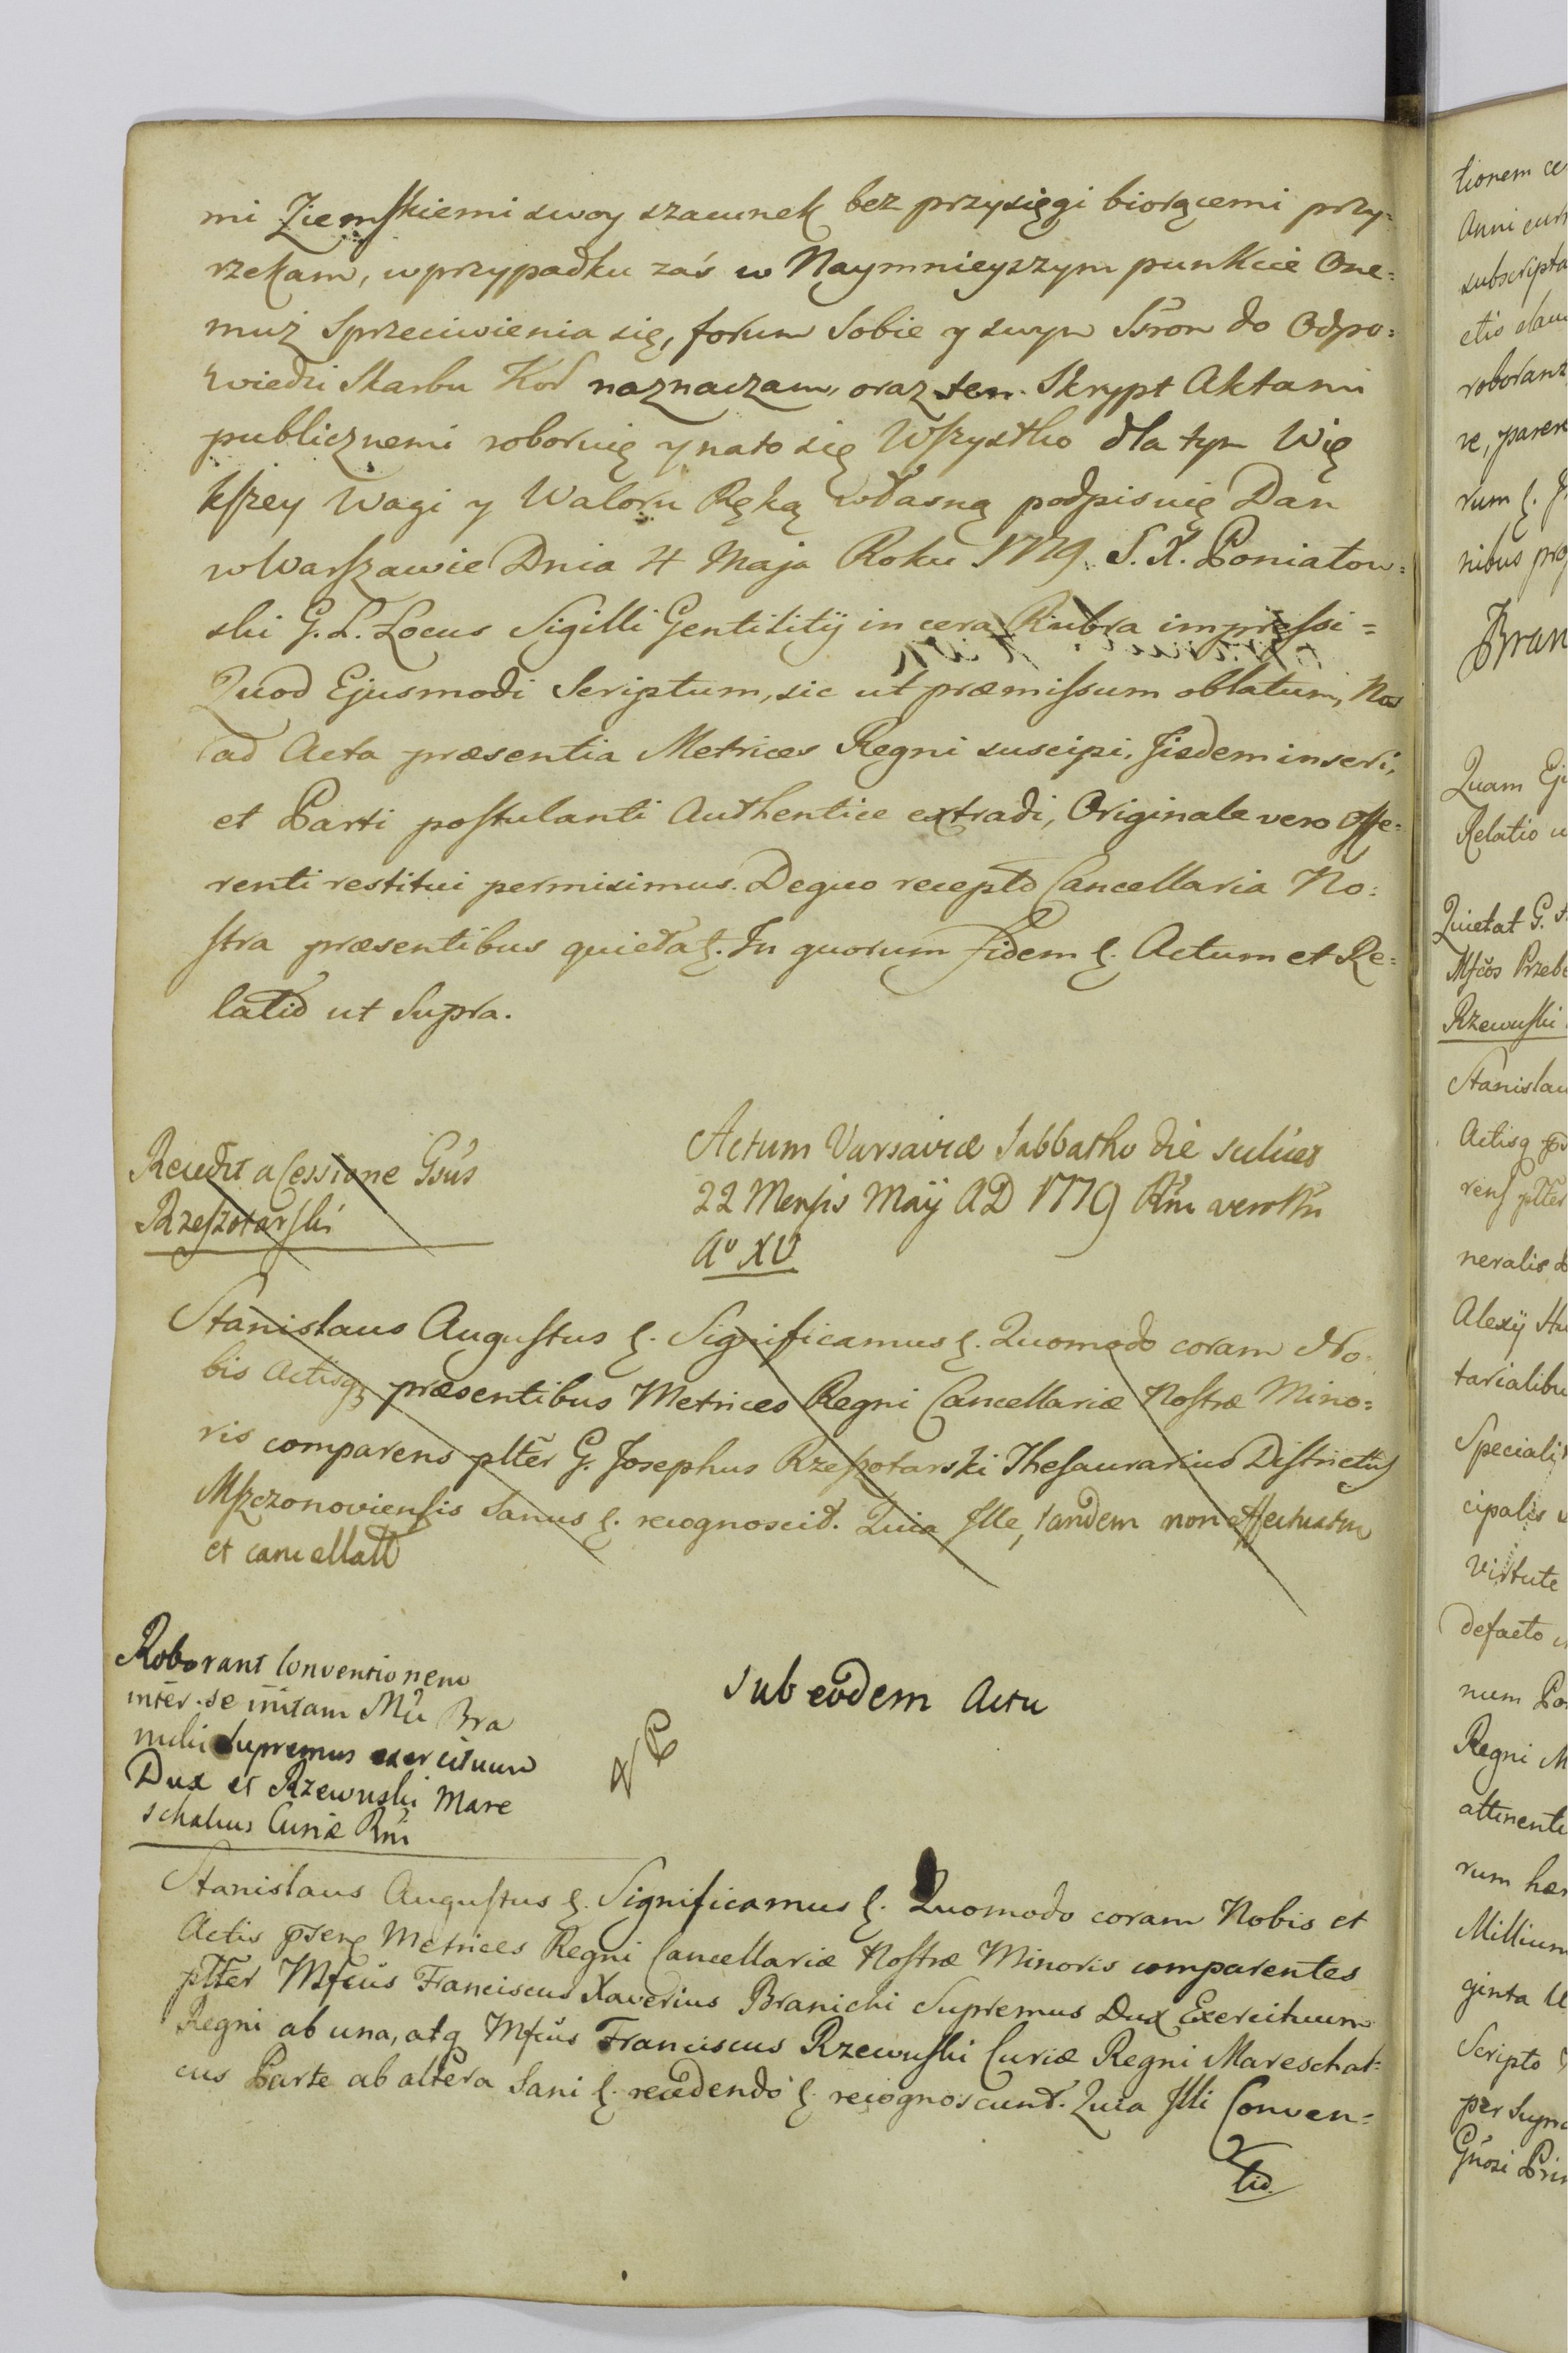 mi Ziemskiemi swoy szacunek bez przysięgi biorącemi przy=
rzekam, w przypadku zaś w Naymnieyszym punkcie One=
muż Sprzeciwienia się, forum Sobie y swym Ssrom do Odpo=
wiedzi Skarbu Kor naznaczam, oraz ten Skrypt Aktami
publicznemi roboruię y na to się Wszystko dla tym Wię
kszey Wagi y Waloru Ręką własną podpisuię Dan
w Warszawie Dnia 4 Maja Roku 1779. S. X. Poniatow=
ski G. L. Locus Sigilli Gentilitij in cera Rubra impressi=
Quod Ejusmodi Scriptum, sic ut præmissum oblatum, Nos
ad Acta præsentia Metrices Regni suscipi, Jisdem inseri,
et Parti postulanti Authentice extradi, Originale vero Offe=
renti restitui permisimus. De quo recepto Cancellaria No=
stra præsentibus quietat. In quorum fidem &. Actum et Re=
latio ut Supra.
Recedit a Cessione Gsus
Rzeszotarski
Actum Varsaviæ Sabbatho die scilicet
22 Mensis Maij AD 1779 Rni vero Nri
Ao XV
Stanislaus Augustus &. Significamus &. Quomodo coram No
bis Actisq præsentibus Metrices Regni Cancellariæ Nostræ Mino=
ris comparens plter G. Josephus Rzeszotarski Thesaurarius Districtus
Mszczonoviensis Sanus &. recognoscit. Quia Ille, tandem non effectuatm
et cancellatt
Roborant Conventionem
inter se initam Mci Bra
nicki Supremus exercituum
Dux et Rzewuski Mare
schalcus Curiæ Rni
Sub eodem Actu
Stanislaus Augustus &. Significamus &. Quomodo coram Nobis et
Actis psen Metrices Regni Cancellariæ Nostræ Minoris comparentes
plter Mfcus Franciscus Xaverius Branicki Supremus Dux Exercituum
Regni ab una, atq Mfcus Franciscus Rzewuski Curiæ Regni Mareschal=
cus Parte ab altera Sani &. recedendo &. recognoscunt. Quia Illi Conven=
tio
tionem
Anni
subscripta
etio
roborant
re, parere
rum &.
nibus
Bran
Quam
Relatio
Quietat G.
Mfcos Przebe
Rzewuski
Stanislau
Actisq
rens plter
neralis
Alexij
tarialibu
Speciali
cipalis
Virtute
defacto
num
Regni M
attinenti
rum
Millium
ginta
Scripto
per Supra